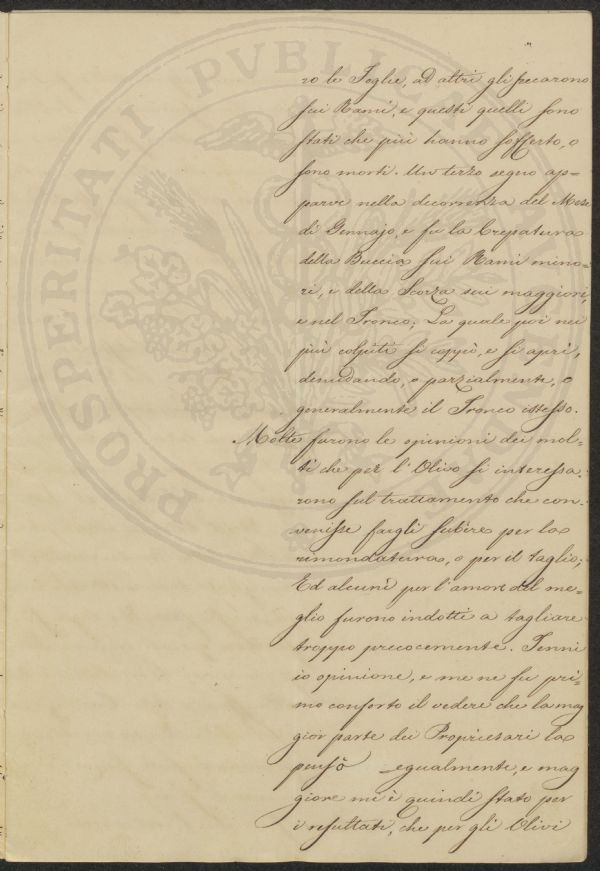 PROSPERITATI PVBLICAE
ro le Foglie, ad altri gli seccarono
sui Rami, e questi quelli sono
stati che più hanno sofferto, o
sono morti. Un terzo segno ap=
parve nella decorrenza del Mese
di Gennajo, e fu la Crepatura
della Buccia sui Rami mino=
ri, e della Scorza sui maggiori,
e nel Tronco; La quale poi nei
più colpiti si coppò, e si aprì,
denudando, o parzialmente, o
generalmente il Tronco istesso.
Molte furono le opinioni dei mol=
ti che per l'Olivo si interessa=
rono sul trattamento che con=
venisse fargli subire per la
rimondatura, o per il taglio;
Ed alcuni per l'amore del me=
glio furono indotti a tagliare
troppo precocemente. Tenni
io opinione, e me ne fu pri=
mo conforto il vedere che la mag
gior parte dei Proprietari la
pensò egualmente, e mag
giore mi è quindi stato per
i resultati, che per gli Olivi